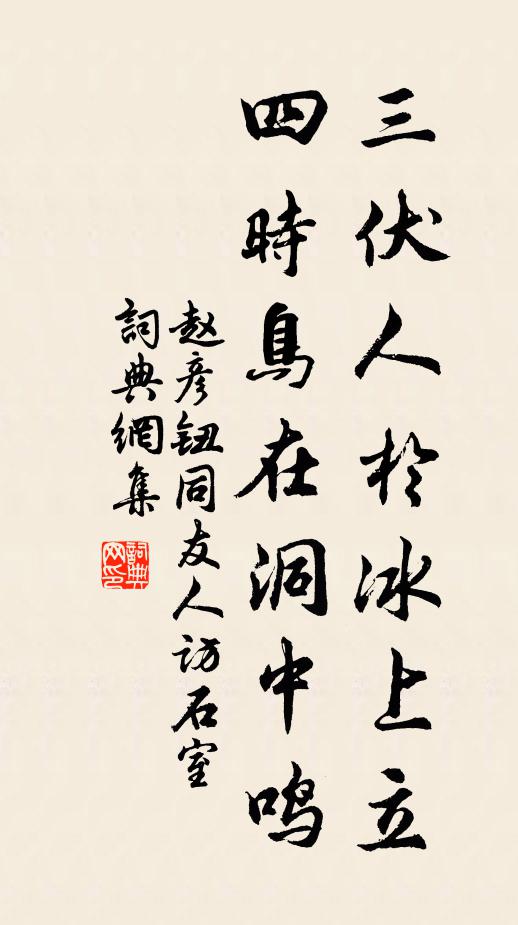 三伏人於冰上立
四時鳥在洞中鳴
赵彦鈕同友人访石室
詞典網集
詞典网印